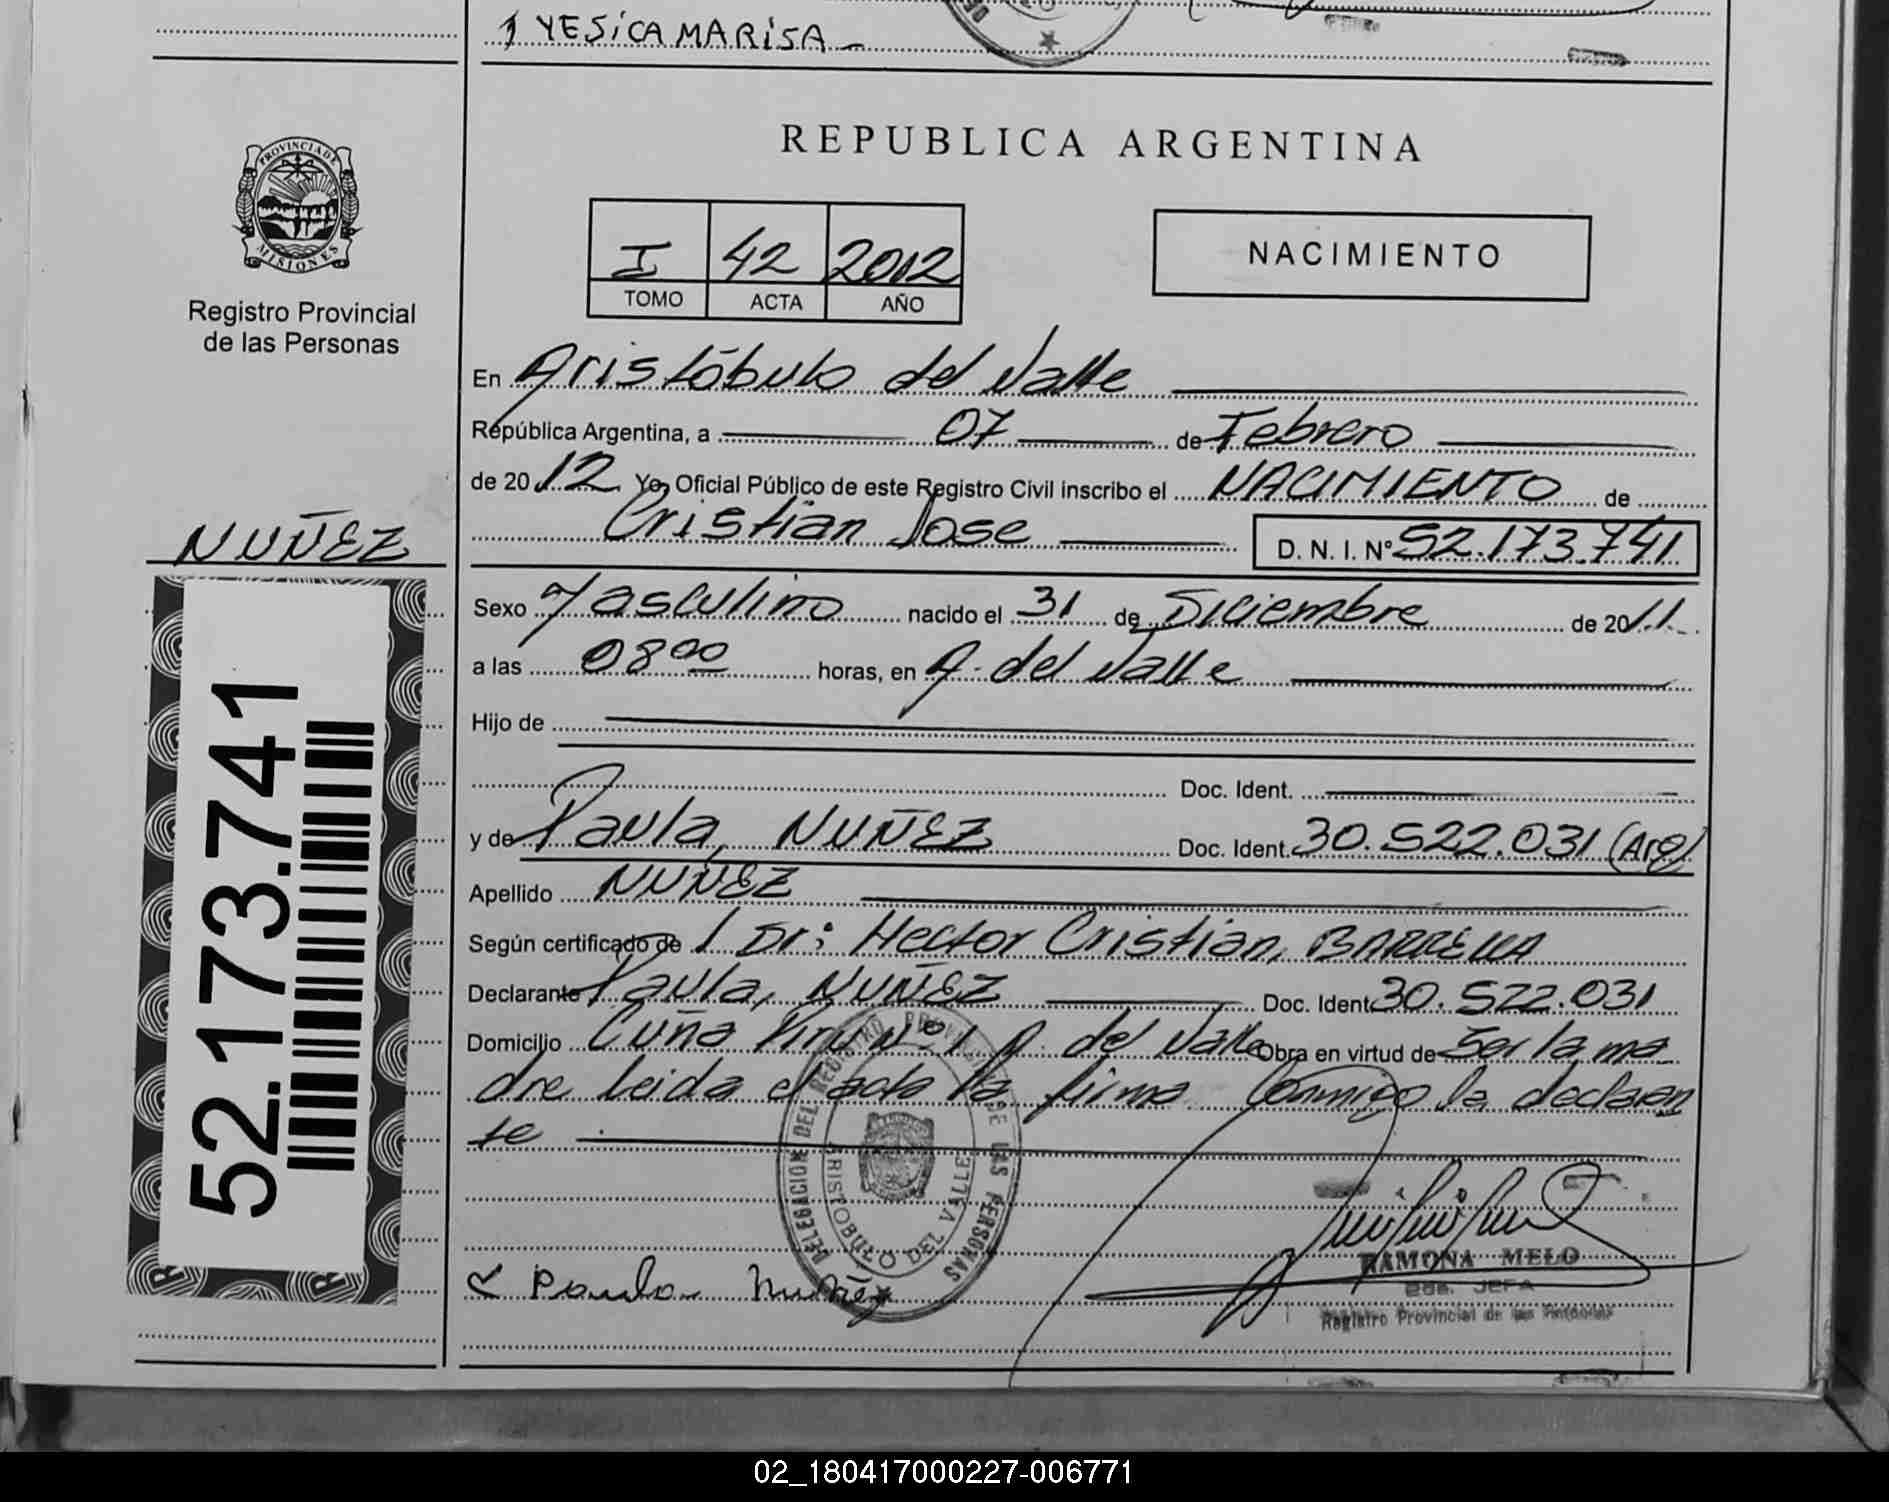 YESICA MARISA
PROVINCIA DE
MISIONES
Registro Provincial
de las Personas
REPUBLICA ARGENTINA
I 42 2012
TOMO ACTA AÑO
NACIMIENTO
En Aristóbulo del Valle
República Argentina, a 07 de Febrero
de 2012 Yo, Oficial Público de este Registro Civil inscribo el NACIMIENTO de
Cristian Jose D. N. I. Nº 52.173.741
NUÑEZ
52.173.741
Sexo Masculino nacido el 31 de Diciembre de 2011
a las 08 00 horas, en A. del Valle
Hijo de
Doc. Ident.
y de Paula, NUÑEZ Doc. Ident. 30.522.031 (Arg)
Apellido NUÑEZ
Según certificado de 1 Dr: Hector Cristian,
Declarante Paula, NUÑEZ Doc. Ident. 30.522.031
Domicilio Cuña Piru Nº 1 A. del Valle Obra en virtud de Ser la ma
dre leida el acta la firma Conmigo la declaran
te
DELEGACION DEL REGISTRO PROVINCIAL DE LAS PERSONAS
ARISTOBULO DEL VALLE
Paula Nuñez
RAMONA MELO
JEFA
Registro Provincial de las Personas
02_180417000227-006771